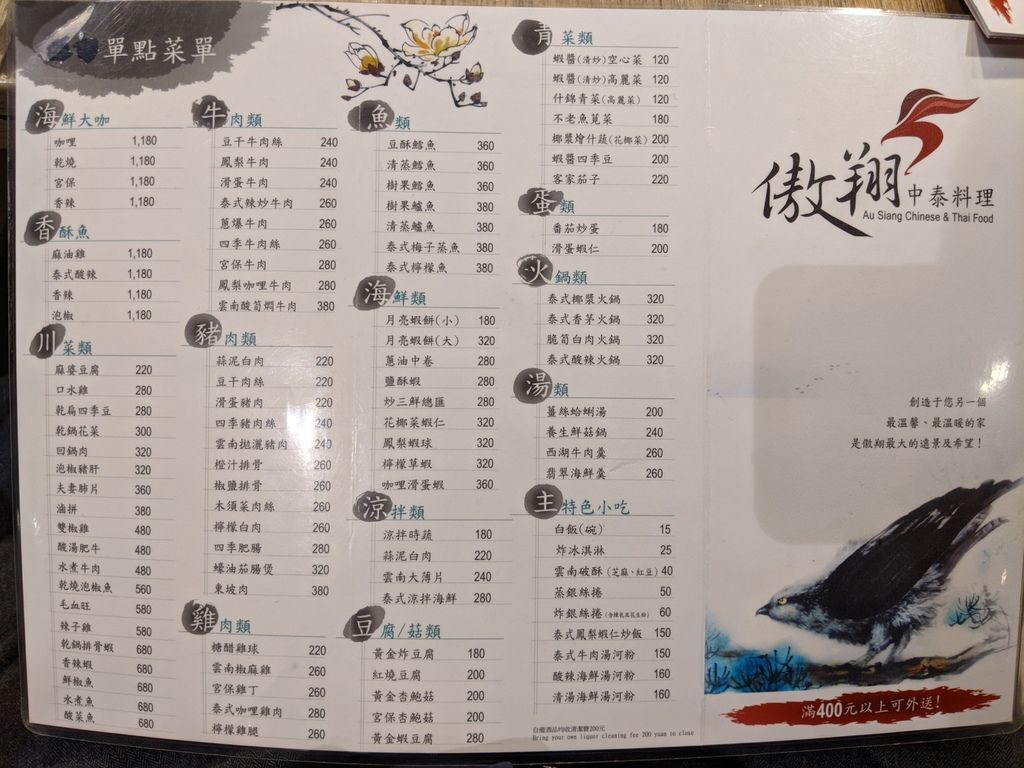 單點菜單
海鮮大咖
咖哩 1,180
乾燒 1,180
宮保 1,180
香辣 1,180
香酥魚
麻油雞 1,180
泰式酸辣 1,180
香辣 1,180
泡椒 1,180
川菜類
麻婆豆腐 220
口水雞 280
乾扁四季豆 280
乾鍋花菜 300
回鍋肉 320
泡椒豬肝 320
夫妻肺片 360
滷拼 380
雙椒雞 480
酸湯肥牛 480
水煮牛肉 480
乾燒泡椒魚 560
毛血旺 580
辣子雞 580
乾鍋排骨蝦 680
香辣蝦 680
鮮椒魚 680
水煮魚 680
酸菜魚 680
牛肉類
豆干牛肉絲 240
鳳梨牛肉 240
滑蛋牛肉 240
泰式辣炒牛肉 260
蔥爆牛肉 260
四季牛肉絲 260
宮保牛肉 280
鳳梨咖哩牛肉 280
雲南酸筍燜牛肉 380
豬肉類
蒜泥白肉 220
豆干肉絲 220
滑蛋豬肉 220
四季豬肉絲 240
雲南拋灑豬肉 240
橙汁排骨 260
椒鹽排骨 260
木須菜肉絲 260
檸檬白肉 260
四季肥腸 280
蠔油茄腸煲 320
東坡肉 380
雞肉類
糖醋雞球 220
雲南椒麻雞 260
宮保雞丁 260
泰式咖哩雞肉 280
檸檬雞腿 260
魚類
豆酥鱈魚 360
清蒸鱈魚 360
樹果鱈魚 360
樹果鱸魚 380
清蒸鱸魚 380
泰式梅子蒸魚 380
泰式檸檬魚 380
海鮮類
月亮蝦餅(小) 180
月亮蝦餅(大) 320
蔥油中卷 280
鹽酥蝦 280
炒三鮮總匯 280
花椰菜蝦仁 320
鳳梨蝦球 320
檸檬草蝦 320
咖哩滑蛋蝦 360
涼拌類
涼拌時蔬 180
蒜泥白肉 220
雲南大薄片 240
泰式涼拌海鮮 280
豆腐/菇類
黃金炸豆腐 180
紅燒豆腐 200
黃金杏鮑菇 200
宮保杏鮑菇 200
黃金蝦豆腐 280
青菜類
蝦醬(清炒)空心菜 120
蝦醬(清炒)高麗菜 120
什錦青菜(高麗菜) 120
不老魚莧菜 180
椰漿燴什蔬(花椰菜) 200
蝦醬四季豆 200
客家茄子 220
蛋類
番茄炒蛋 180
滑蛋蝦仁 200
火鍋類
泰式椰漿火鍋 320
泰式香茅火鍋 320
脆筍白肉火鍋 320
泰式酸辣火鍋 320
湯類
薑絲蛤蜊湯 200
養生鮮菇鍋 240
西湖牛肉羹 260
翡翠海鮮羹 260
主特色小吃
白飯(碗) 15
炸冰淇淋 25
雲南破酥(芝麻、紅豆) 40
蒸銀絲捲 50
炸銀絲捲(含煉乳及花生粉) 60
泰式鳳梨蝦仁炒飯 150
泰式牛肉湯河粉 150
酸辣海鮮湯河粉 160
清湯海鮮湯河粉 160
自備酒品均收清潔費200元
Bring your own liquor cleaning fee 200 yuan to close
傲翔中泰料理
Au Siang Chinese & Thai Food
創造于您另一個
最溫馨、最溫暖的家
是傲翔最大的遠景及希望！
滿400元以上可外送！